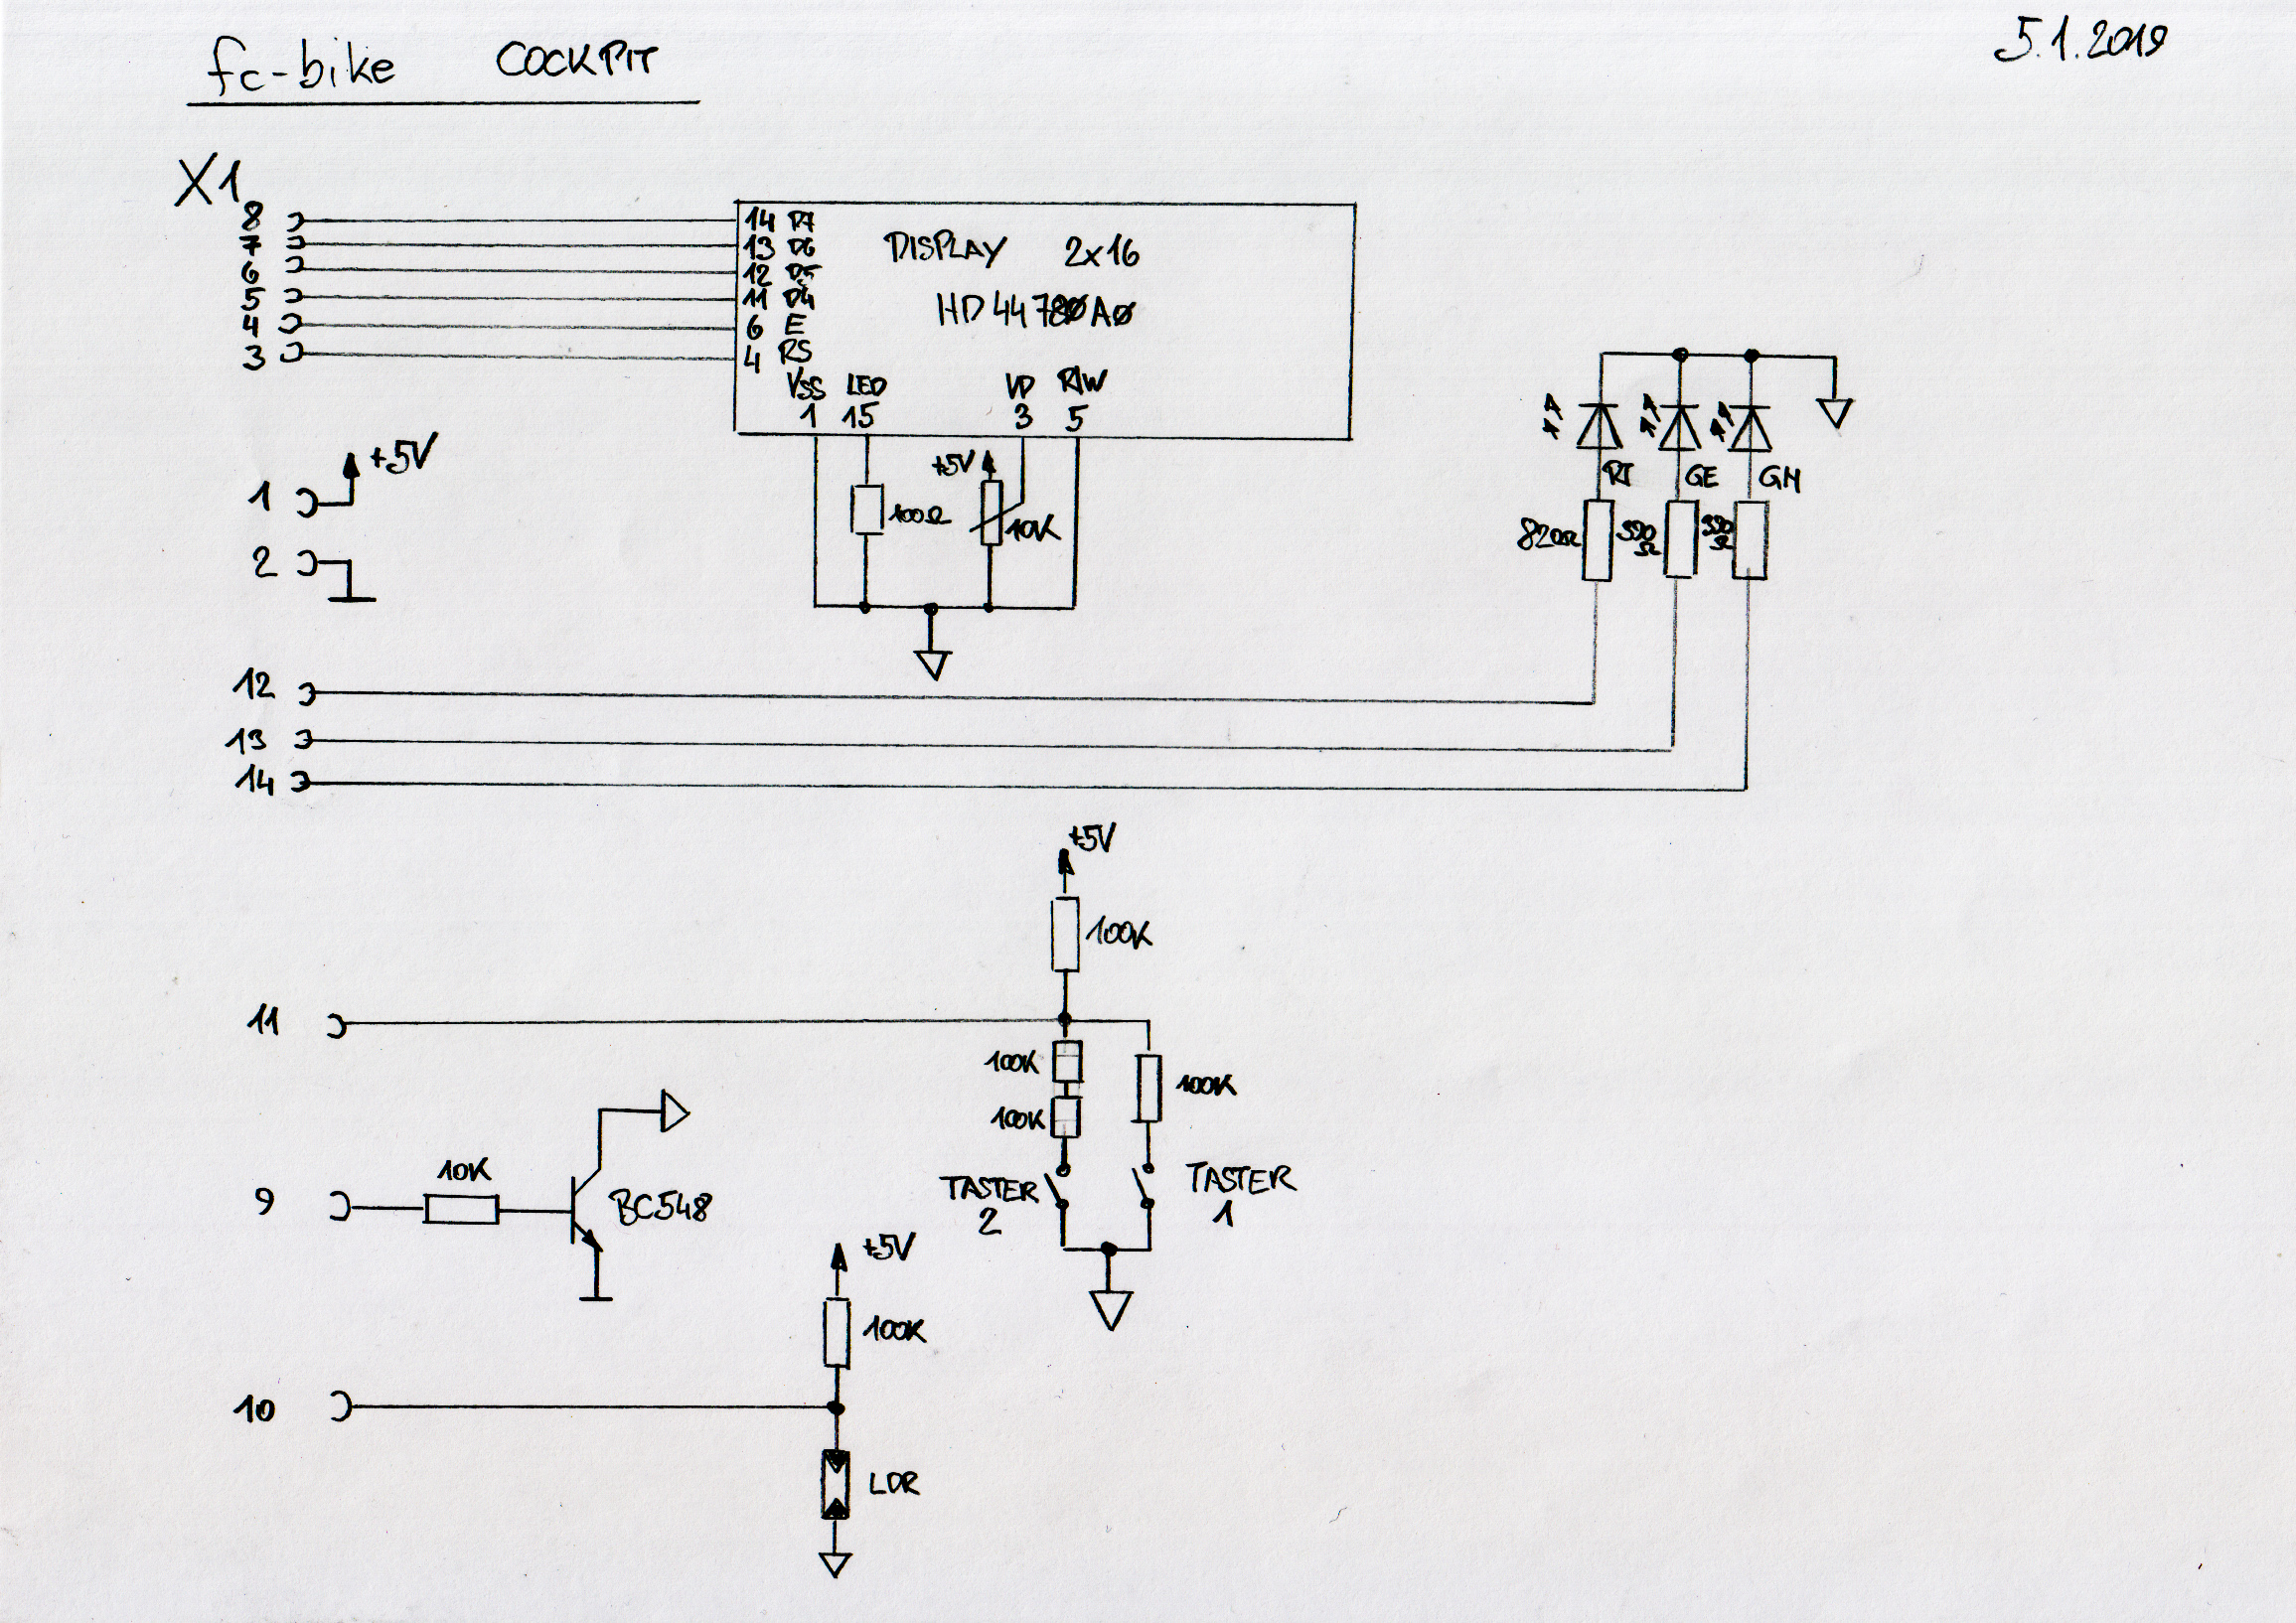 fc-bike COCKPIT
5.1.2019
X1
8
7
6
5
4
3
14 D7
13 D6
12 D5
11 D4
6 E
4 RS
DISPLAY 2x16
HD44780A0
VSS LED VD R/W
1 15 3 5
+5V
1
2
100Ω
+5V
10K
RT GE GN
820Ω
390
Ω
390
Ω
12
13
14
+5V
100K
11
100K
100K
100K
TASTER
2
TASTER
1
9
10K
BC548
+5V
100K
10
LDR